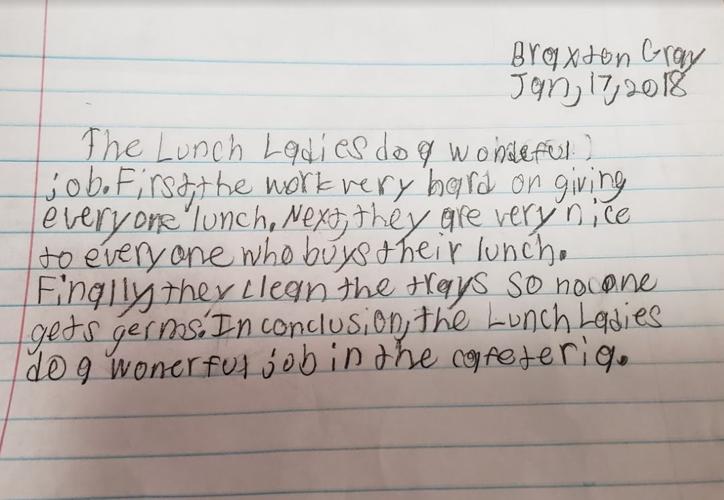 Braxton Gray
Jan, 17, 2018
The Lunch Ladies do a wondeful
job. First, the work very hard on giving
everyone lunch. Next, they are very nice
to everyone who buys their lunch.
Finally, they clean the trays so no one
gets germs. In conclusion, the Lunch Ladies
do a wonerful job in the cafeteria.